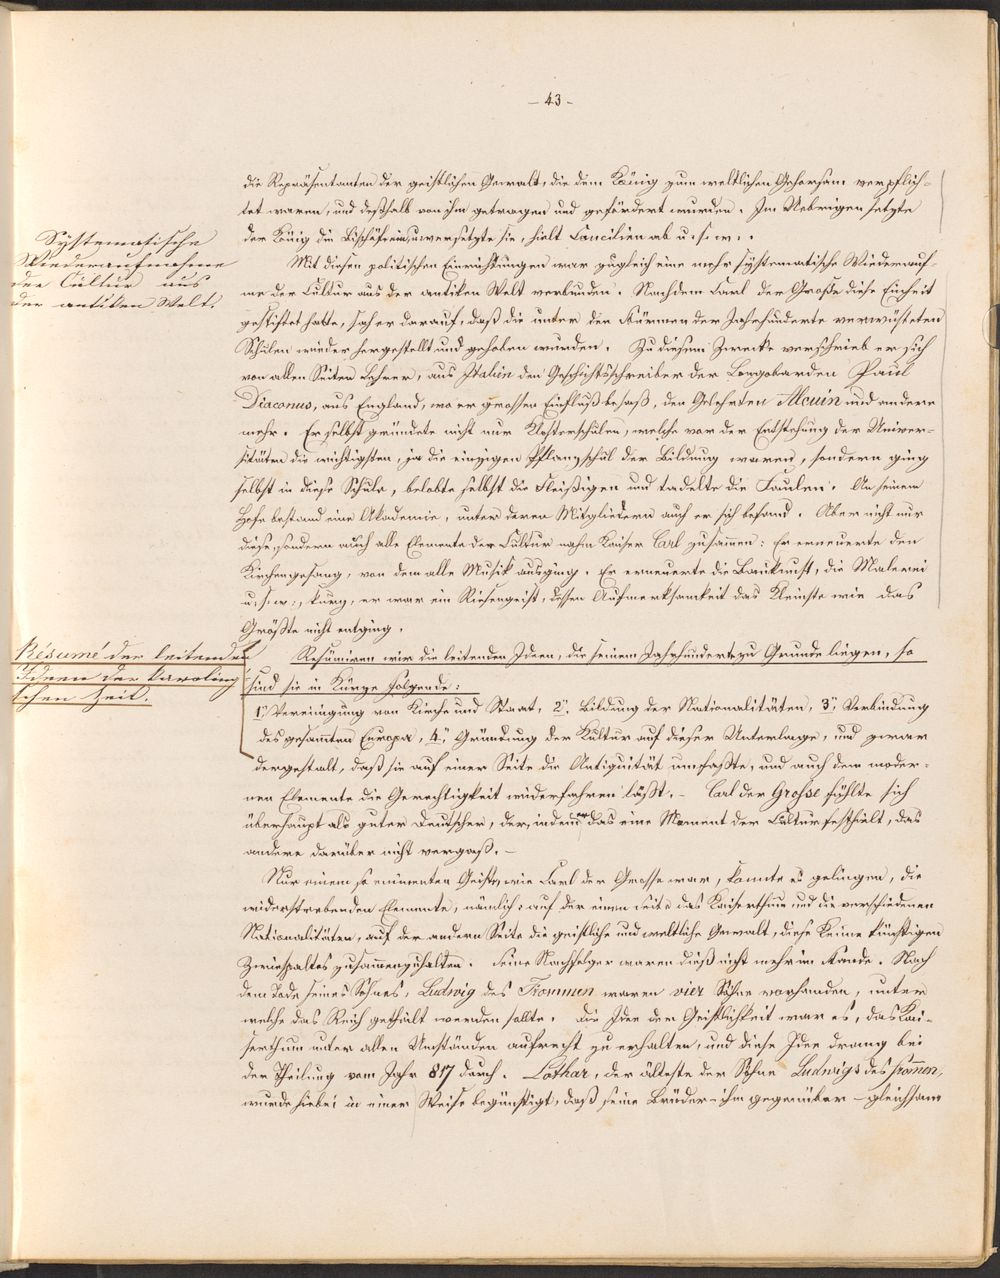 - 43 -
die Repräsentanten der geistlichen Gewalt, die dem König zum weltlichen Gehorsam verpflich-
tet waren, und deßhalb von ihm getragen und gefördert wurden. Im Uebrigen setzte
der König die Bischöfe ein, versetzte sie, hielt Concilien ab u. s. w.
Systematische
Wiederaufnahme
der Cultur aus
der antiken Welt.
Mit diesen politischen Einrichtungen war zugleich eine mehr systematische Wiederauf-
me der Cultur aus der antiken Welt verbunden. Nachdem Carl der Große diese Einheit
gestiftet hatte, sah er darauf, daß die unter den Stürmen der Jahrhunderte verwüsteten
Schulen wieder hergestellt und gehoben wurden. Zu diesem Zwecke verschrieb er sich
von allen Seiten Lehrer, aus Italien den Geschichtsschreiber der Longobarden Paul
Diaconus, aus England, wo er grossen Einfluß besaß, den Gelehrten Alcuin und andere
mehr. Er selbst gründete nicht nur Klosterschulen, welche vor der Entstehung der Univer-
sitäten die wichtigsten, ja die einzigen Pflanzschul der Bildung waren, sondern ging
selbst in diese Schule, belobte selbst die Fleißigen und tadelte die Faulen. An seinem
Hofe bestand eine Akademie, unter deren Mitgliedern auch er sich befand. Aber nicht nur
diese, sondern auch alle Elemente der Cultur nahm Kaiser Carl zusammen: Er erneuerte den
Kirchengesang, von dem alle Musik ausging. Er erneuerte die Baukunst, die Malerei
u. s. w., kurz, er war ein Riesengeist, dessen Aufmerksamkeit das Kleinste wie das
Größte nicht entging.
Résumé der leitenden
Ideen der karoling
schen Zeit.
Resümiren wir die leitenden Ideen, die seinem Jahrhundert zu Grunde liegen, so
sind sie in Kürze folgende:
1, Vereinigung von Kirche und Staat, 2, Bildung der Nationalitäten, 3, Verbindung
des gesammten Europa, 4, Gründung der Kultur auf dieser Unterlage, und zwar
dergestalt, daß sie auf einer Seite die Antiquität umfaßte, und auch dem moder-
nen Elemente die Gerechtigkeit widerfahren läßt. - Carl der Grosse fühlte sich
überhaupt als guter Deutscher, der, indem er das eine Moment der Cultur festhielt, das
andere darüber nicht vergaß. -
Nur einem so eminenten Geiste, wie Carl der Grosse war, konnte es gelingen, die
widerstrebenden Elemente, nämlich: auf der einen Seite das Kaiserthum und die verschiedenen
Nationalitäten, auf der andern Seite die geistliche und weltliche Gewalt, diese Keime künftigen
Zwiespaltes zusammenzuhalten. Seine Nachfolger waren dieß nicht mehr im Stande. Nach
dem Tode seines Sohnes, Ludwig des Frommen waren vier Söhne vorhanden, unter
welche das Reich getheilt werden sollte. Die Idee der Geistlichkeit war es, das Kai-
serthum unter allen Umständen aufrecht zu erhalten, und diese Idee drang bei
der Theilung vom Jahr 817 durch. Lothar, der älteste der Söhne Ludwigs des Frommen,
wurde hiebei in einer Weise begünstigt, daß seine Brüder - ihm gegenüber - gleichsam